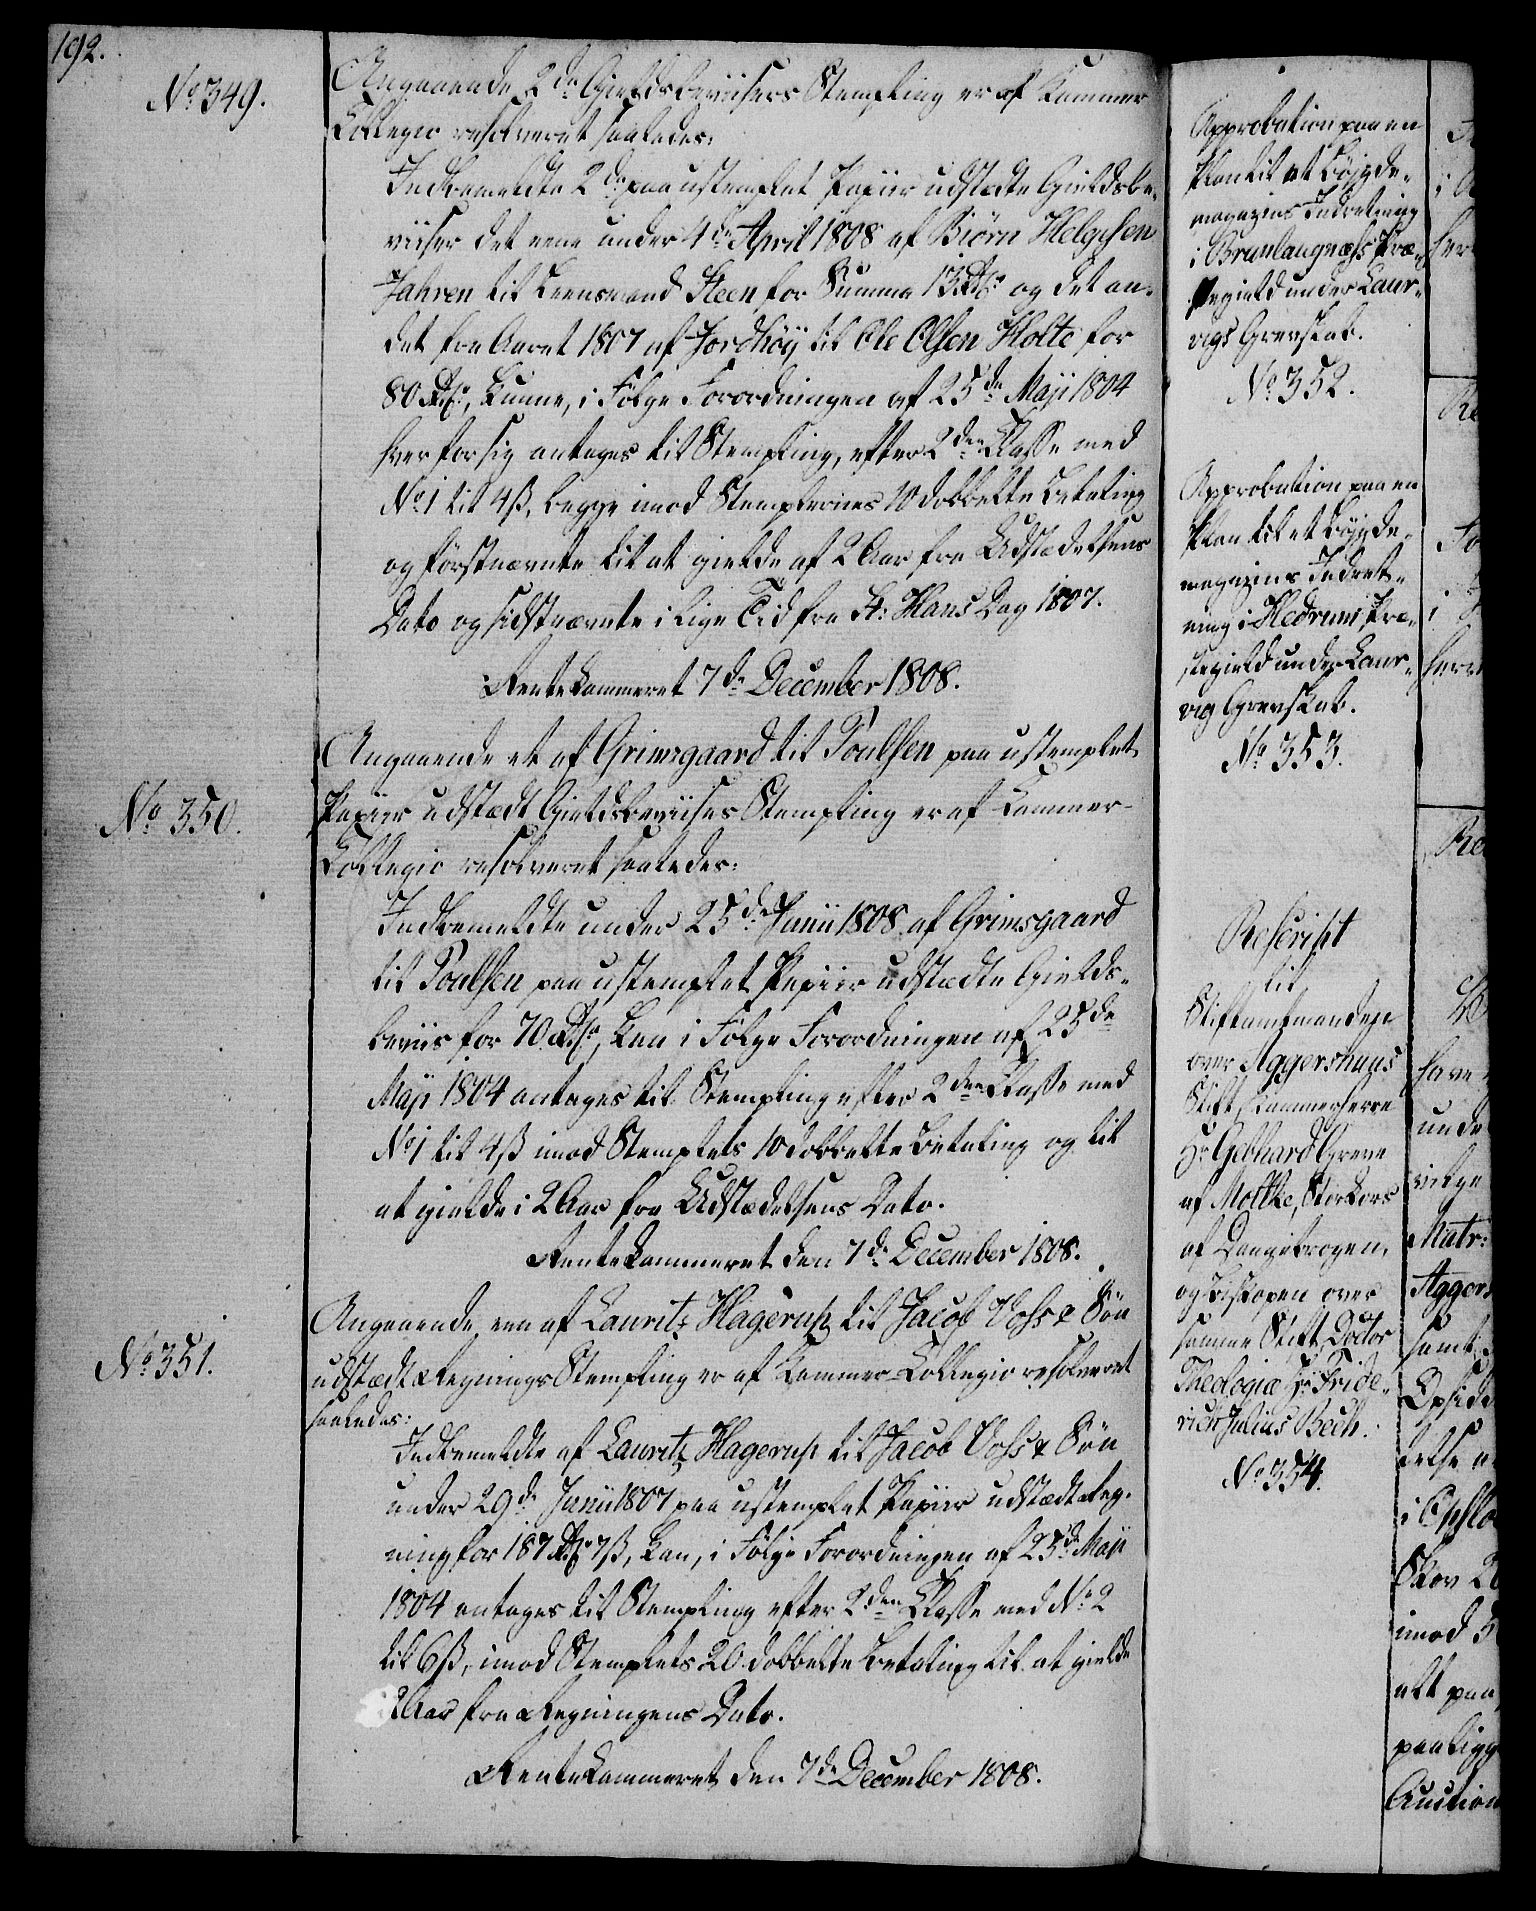 192.
No 349.
Angaaende 2de Gieldsbeviisers Stempling er af Kammer
Collegio resolveret saaledes:
Indbemeldte 2de paa ustemplet Papiir udstædte Gieldsbe-
viiser det eene under 4de April 1808 af Biörn Helgesen
Jahren til Leensmand Steen for Summa 13 Rdr og det an-
det fra Aaret 1807 af Jordhöy til Ole Olsen Holte for
80 Rdr, kunne, i Fölge Forordningen af 25de Maji 1804
hver for sig antages til Stempling, efter 2den Classe med
No 1 til 4 ß, begge imod Stemplernes 10 dobbelte Betaling
og förstnævnte til at gielde af 2 Aar fra Udstædelsens
Dato og sidstnævnte i lige Tid fra St: Hans Dag 1807.
Rentekammeret 7de December 1808.
No 350.
Angaaende et af Grimsgaard til Poulsen paa ustemplet
Papiir udstædt Gieldsbeviises Stempling er af Kammer-
Collegio resolveret saaledes:
Indbemeldte under 25de Junii 1808 af Grimsgaard
til Poulsen paa ustemplet Papiir udstædte Gields-
beviis for 70 Rdr, kan i Fölge Forordningen af 25de
Maji 1804 antages til Stempling efter 2den Classe med
No 1 til 4 ß imod Stemplets 10 dobbelte Betaling og til
at gielde i 2 Aar fra Udstædelsens Dato.
Rentekammeret den 7de December 1808.
No 351.
Angaaende een af Lauritz Hagerup til Jacob Vohs & Sön
udstædt Regnings Stempling er af Kammer-Collegio resolveret
saaledes:
Indbemeldte af Lauritz Hagerup til Jacob Vohs & Sön
under 29de Junii 1807 paa ustemplet Papiir udstædt Reg-
ning for 187 Rdr 7 ß, kan, i Fölge Forordningen af 25de Maji
1804 antages til Stempling efter 2den Classe med No 2
til 6 ß, imod Stemplets 20 dobbelte Betaling til at gielde
2 Aar fra Regningens Dato.
Rentekammeret den 7de December 1808.
Approbation paa en
Plan til et Böygde-
magazins Indretning
i Brunlaugnæhs Præ-
stegield under Laur-
vigs Grevskab.
No 352.
Approbation paa en
Plan til et Böygde-
magazins Indret-
ning i Hedrum Præ-
stegield under Laur-
vig Grevskab.
No 353.
Rescript
til
Stiftamtmanden
over Aggershuus
Stift Kammerherre
Hr Gebhard Greve
af Moltke, Storkors
af Dannebrogen,
og Biskopen over
samme Stift, Doctor
Theologiæ Hr Fride-
rich Julius Bech.
No 354.
have
unde
vilge
Matr:
Aggers
samt
Opsid
delse
i Opslo
Skov
imod
alt paa
paaligg
Auction